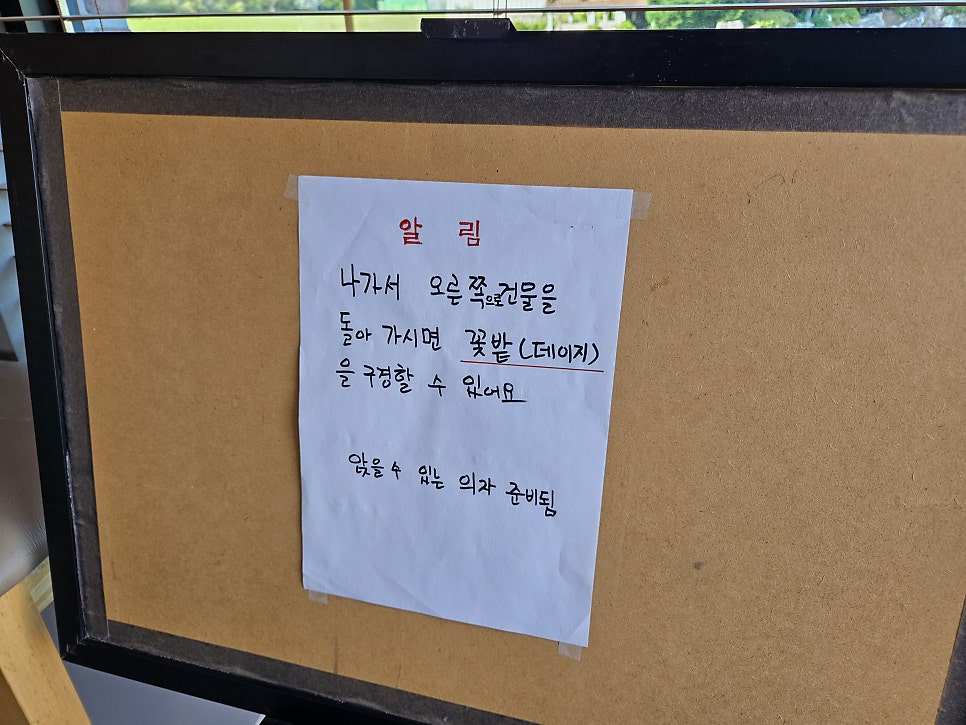 알 림
나가서 오른쪽으로 건물을
돌아 가시면 꽃밭(데이지)
을 구경할 수 있어요
앉을 수 있는 의자 준비됨